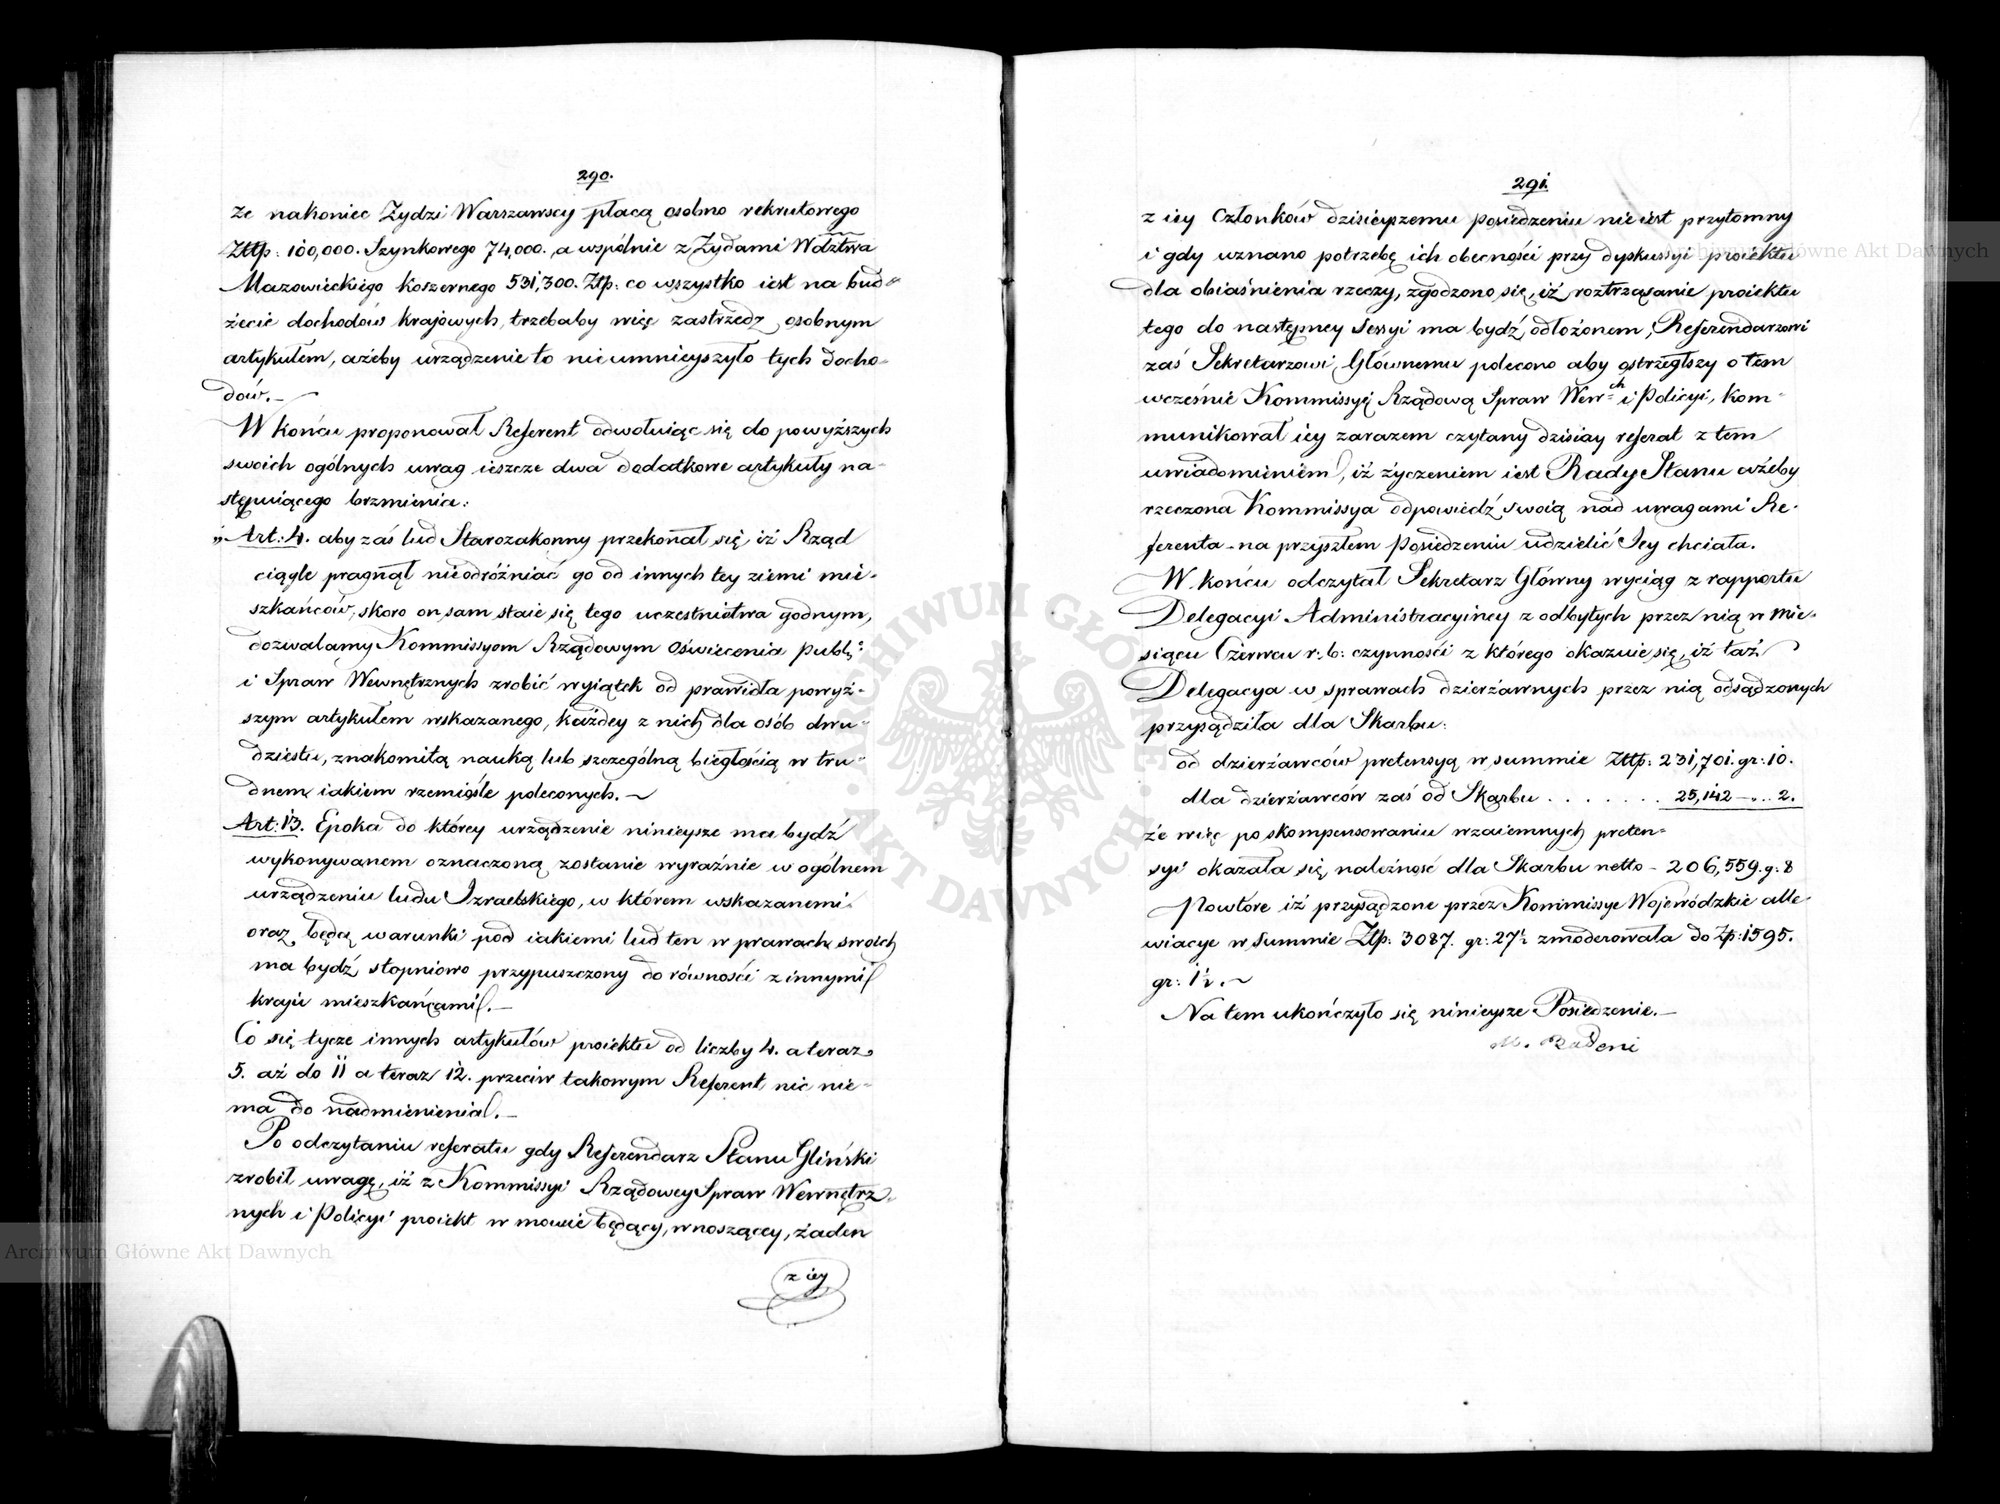 290.
że nakoniec Żydzi Warszawscy płacą osobno rekrutowego
Zttp: 100,000. Szynkowego 74,000. a wspólnie z Żydami Wdztwa
Mazowieckiego koszernego 531,300. Ztp: co wszystko iest na bud-
żecie dochodów krajowych, trzebaby więc zastrzedz osobnym
artykułem, ażeby urządzenie to nieumnieyszyło tych docho-
dów.—
W końcu proponował Referent odwołuiąc się do powyższych
swoich ogólnych uwag ieszcze dwa dodatkowe artykuły na-
stępuiącego brzmienia:
„Art: 4. aby zaś lud Starozakonny przekonał się, iż Rząd
ciągle pragnął nieodróżniać go od innych tey ziemi mie-
szkańców, skoro on sam staie się tego uczestnictwa godnym,
dozwalamy Kommissyom Rządowym Oświecenia publ:
i Spraw Wewnętrznych zrobić wyiątek od prawidła powyż-
szym artykułem wskazanego, każdey z nich dla osób dwu-
dziestu, znakomitą nauką lub szczególną biegłością w tru-
dnem iakiem rzemiośle poleconych.—
Art: 13. Epoka do którey urządzenie ninieysze ma bydź
wykonywanem oznaczoną zostanie wyraźnie w ogólnem
urządzeniu ludu Izraelskiego, w którem wskazanemi
oraz będą warunki pod iakiemi lud ten w prawach swoich
ma bydź stopniowo przypuszczony do równości z innymi
kraju mieszkańcami.—
Co się tycze innych artykułów proiektu od liczby 4. a teraz
5. aż do 11 a teraz 12. przeciw takowym Referent nic nie-
ma do nadmienienia.—
Po odczytaniu referatu gdy Referendarz Stanu Gliński
zrobił uwagę, iż z Kommissyi Rządowey Spraw Wewnętrz-
nych i Policyi proiekt w mowie będący, wnoszącey, żaden
z iey
291.
z iey Członków dzisieyszemu posiedzeniu nieiest przytomny
i gdy uznano potrzebę ich obecności przy dyskussyi proiektu
dla obiaśnienia rzeczy, zgodzono się, iż roztrząsanie proiektu
tego do następney Sessyi ma bydź odłożonem, Referendarzowi
zaś Sekretarzowi Głównemu polecono aby ostrzegłszy o tem
wcześnie Kommissyię Rządową Spraw Wewch i Policyi, kom-
munikował iey zarazem czytany dzisiay referat z tem
uwiadomieniem, iż życzeniem iest Rady Stanu ażeby
rzeczona Kommissya odpowiedź swoią nad uwagami Re-
ferenta na przyszłem Posiedzeniu udzielić Jey chciała.
W końcu odczytał Sekretarz Główny wyciąg z rapportu
Delegacyi Administracyiney z odbytych przez nią w mie-
siącu Czerwcu r: b: czynności z którego okazuie się, iż taż
Delegacya w sprawach dzierżawnych przez nią odsądzonych
przysądziła dla Skarbu:
od dzierżawców pretensyą w summie Zttp: 231,701. gr: 10.
dla dzierżawców zaś od Skarbu . . . . . . . 25,142 — „ . . 2.
że więc po skompensowaniu wzaiemnych preten-
syi okazała się należność dla Skarbu netto — 206,559. g: 8
Powtóre iż przysądzone przez Kommissye Wojewódzkie alle-
wiacye w summie Ztp: 3087. gr: 27½ zmoderowała do Zp: 1595.
gr: 1½.—
Na tem ukończyło się ninieysze Posiedzenie.—
M. Badeni
ARCHIWUM GŁÓWNE AKT DAWNYCH
Archiwum Główne Akt Dawnych
Archiwum Główne Akt Dawnych